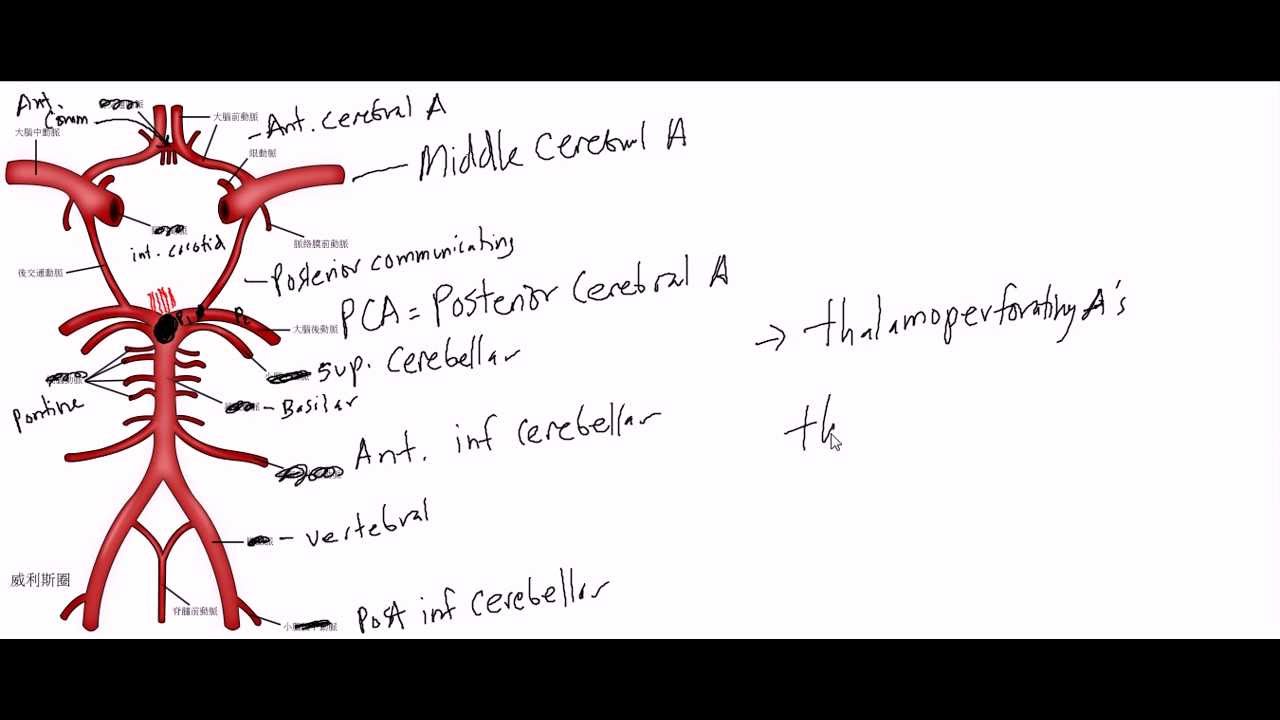 Ant.
Comm
大腦中動脈
大腦前動脈
Ant. cerebral A
眼動脈
Middle Cerebral A
int. corotid
脈絡膜前動脈
後交通動脈
Posterior communicating
P1
P2
PCA = Posterior Cerebral A
大腦後動脈
→ thalamoperforating A's
sup. cerebellar
Pontine
- Basilar
Ant. inf cerebellar
th
- vertebral
威利斯圈
脊髓前動脈
Post inf cerebellar